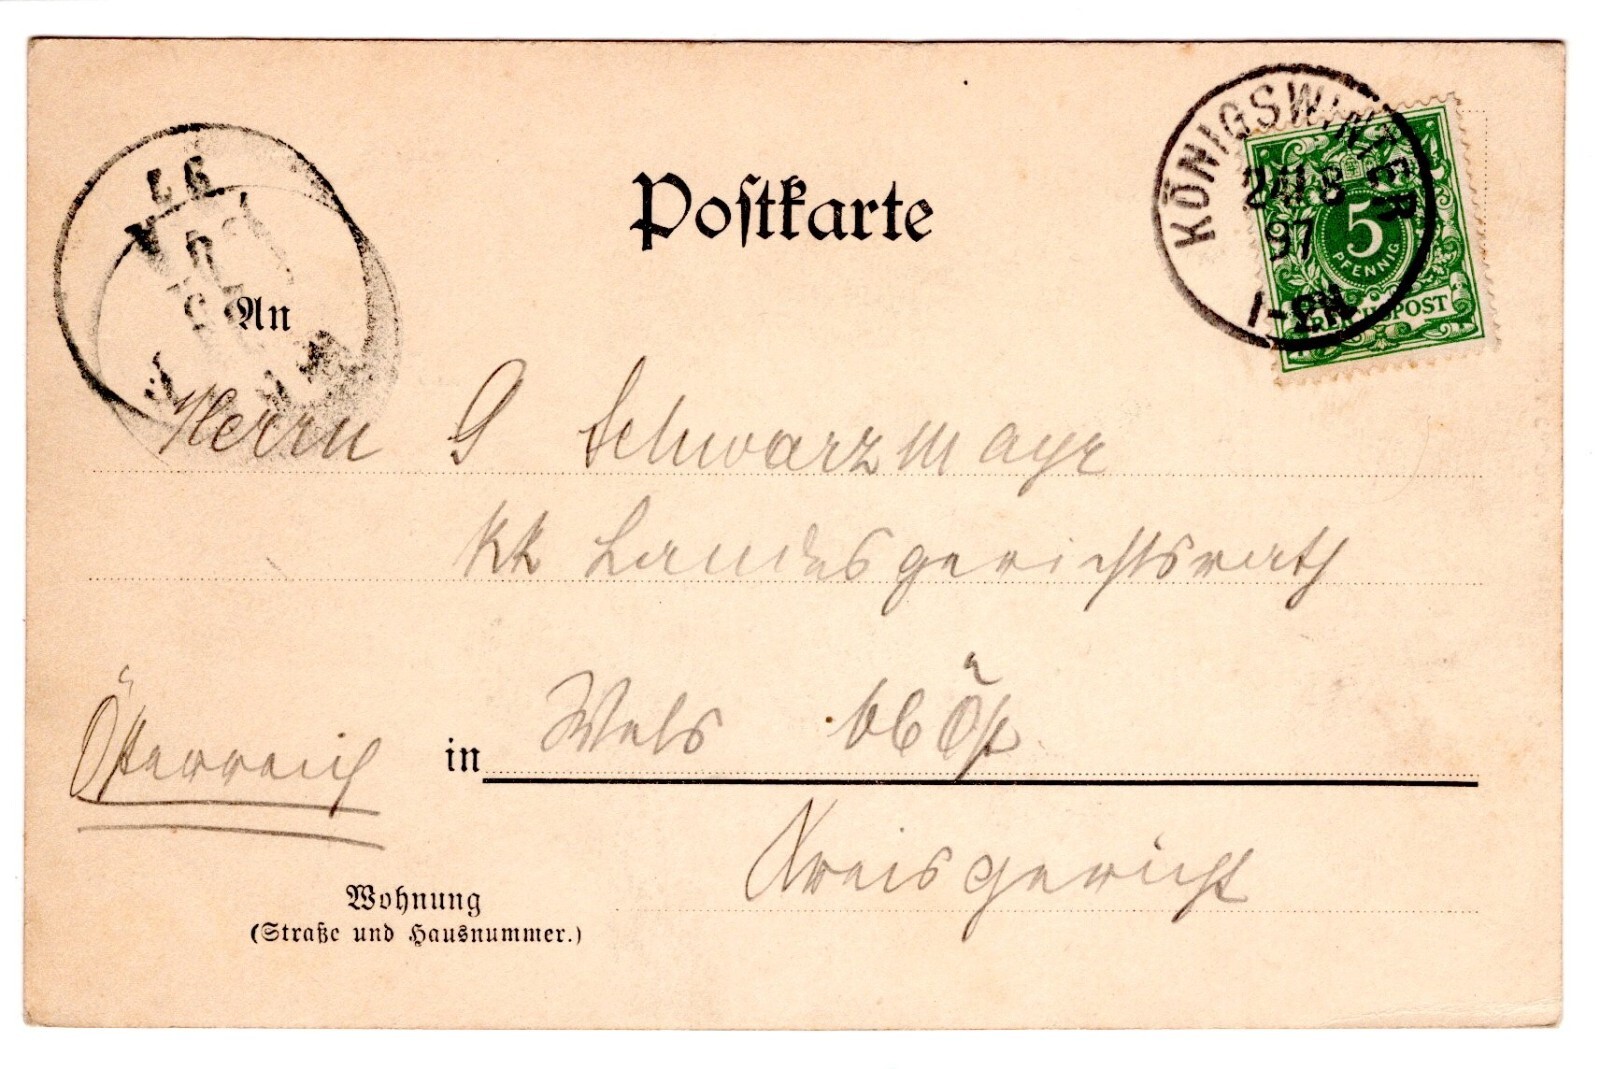 Postkarte
KÖNIGSWINTER
97
1-2N
5
PFENNIG
REICHSPOST
97
An
Herrn G Schwarzmayr
kk Landesgerichtsrath
Österreich
in Wels ob Öst
Kreisgericht
Wohnung
(Straße und Hausnummer.)